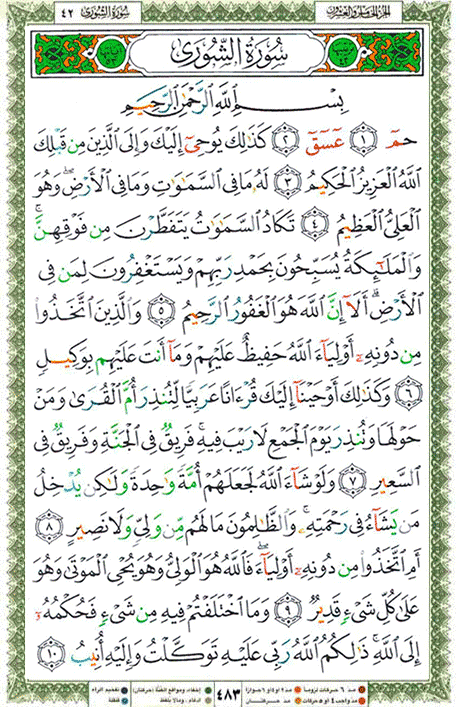 سُورَةُ الشُّورَىٰ ٤٢ الجزء الخامس والعشرون
سُورَةُ الشُّورَىٰ
بِسْمِ اللَّهِ الرَّحْمَٰنِ الرَّحِيمِ
حمٓ ١ عٓسٓقٓ ٢ كَذَٰلِكَ يُوحِىٓ إِلَيْكَ وَإِلَى الَّذِينَ مِن قَبْلِكَ
اللَّهُ الْعَزِيزُ الْحَكِيمُ ٣ لَهُۥ مَا فِى السَّمَٰوَٰتِ وَمَا فِى الْأَرْضِ ۖ وَهُوَ
الْعَلِىُّ الْعَظِيمُ ٤ تَكَادُ السَّمَٰوَٰتُ يَتَفَطَّرْنَ مِن فَوْقِهِنَّ ۚ
وَالْمَلَٰٓئِكَةُ يُسَبِّحُونَ بِحَمْدِ رَبِّهِمْ وَيَسْتَغْفِرُونَ لِمَن فِى
الْأَرْضِ ۗ أَلَآ إِنَّ اللَّهَ هُوَ الْغَفُورُ الرَّحِيمُ ٥ وَالَّذِينَ اتَّخَذُوا۟
مِن دُونِهِۦٓ أَوْلِيَآءَ اللَّهُ حَفِيظٌ عَلَيْهِمْ وَمَآ أَنتَ عَلَيْهِم بِوَكِيلٍ
٦ وَكَذَٰلِكَ أَوْحَيْنَآ إِلَيْكَ قُرْءَانًا عَرَبِيًّا لِّتُنذِرَ أُمَّ الْقُرَىٰ وَمَنْ
حَوْلَهَا وَتُنذِرَ يَوْمَ الْجَمْعِ لَا رَيْبَ فِيهِ ۚ فَرِيقٌ فِى الْجَنَّةِ وَفَرِيقٌ فِى
السَّعِيرِ ٧ وَلَوْ شَآءَ اللَّهُ لَجَعَلَهُمْ أُمَّةً وَٰحِدَةً وَلَٰكِن يُدْخِلُ
مَن يَشَآءُ فِى رَحْمَتِهِۦ ۚ وَالظَّٰلِمُونَ مَا لَهُم مِّن وَلِىٍّ وَلَا نَصِيرٍ ٨
أَمِ اتَّخَذُوا۟ مِن دُونِهِۦٓ أَوْلِيَآءَ ۖ فَاللَّهُ هُوَ الْوَلِىُّ وَهُوَ يُحْىِ الْمَوْتَىٰ وَهُوَ
عَلَىٰ كُلِّ شَىْءٍ قَدِيرٌ ٩ وَمَا اخْتَلَفْتُمْ فِيهِ مِن شَىْءٍ فَحُكْمُهُۥٓ
إِلَى اللَّهِ ۚ ذَٰلِكُمُ اللَّهُ رَبِّى عَلَيْهِ تَوَكَّلْتُ وَإِلَيْهِ أُنِيبُ ١٠
٤٨٣